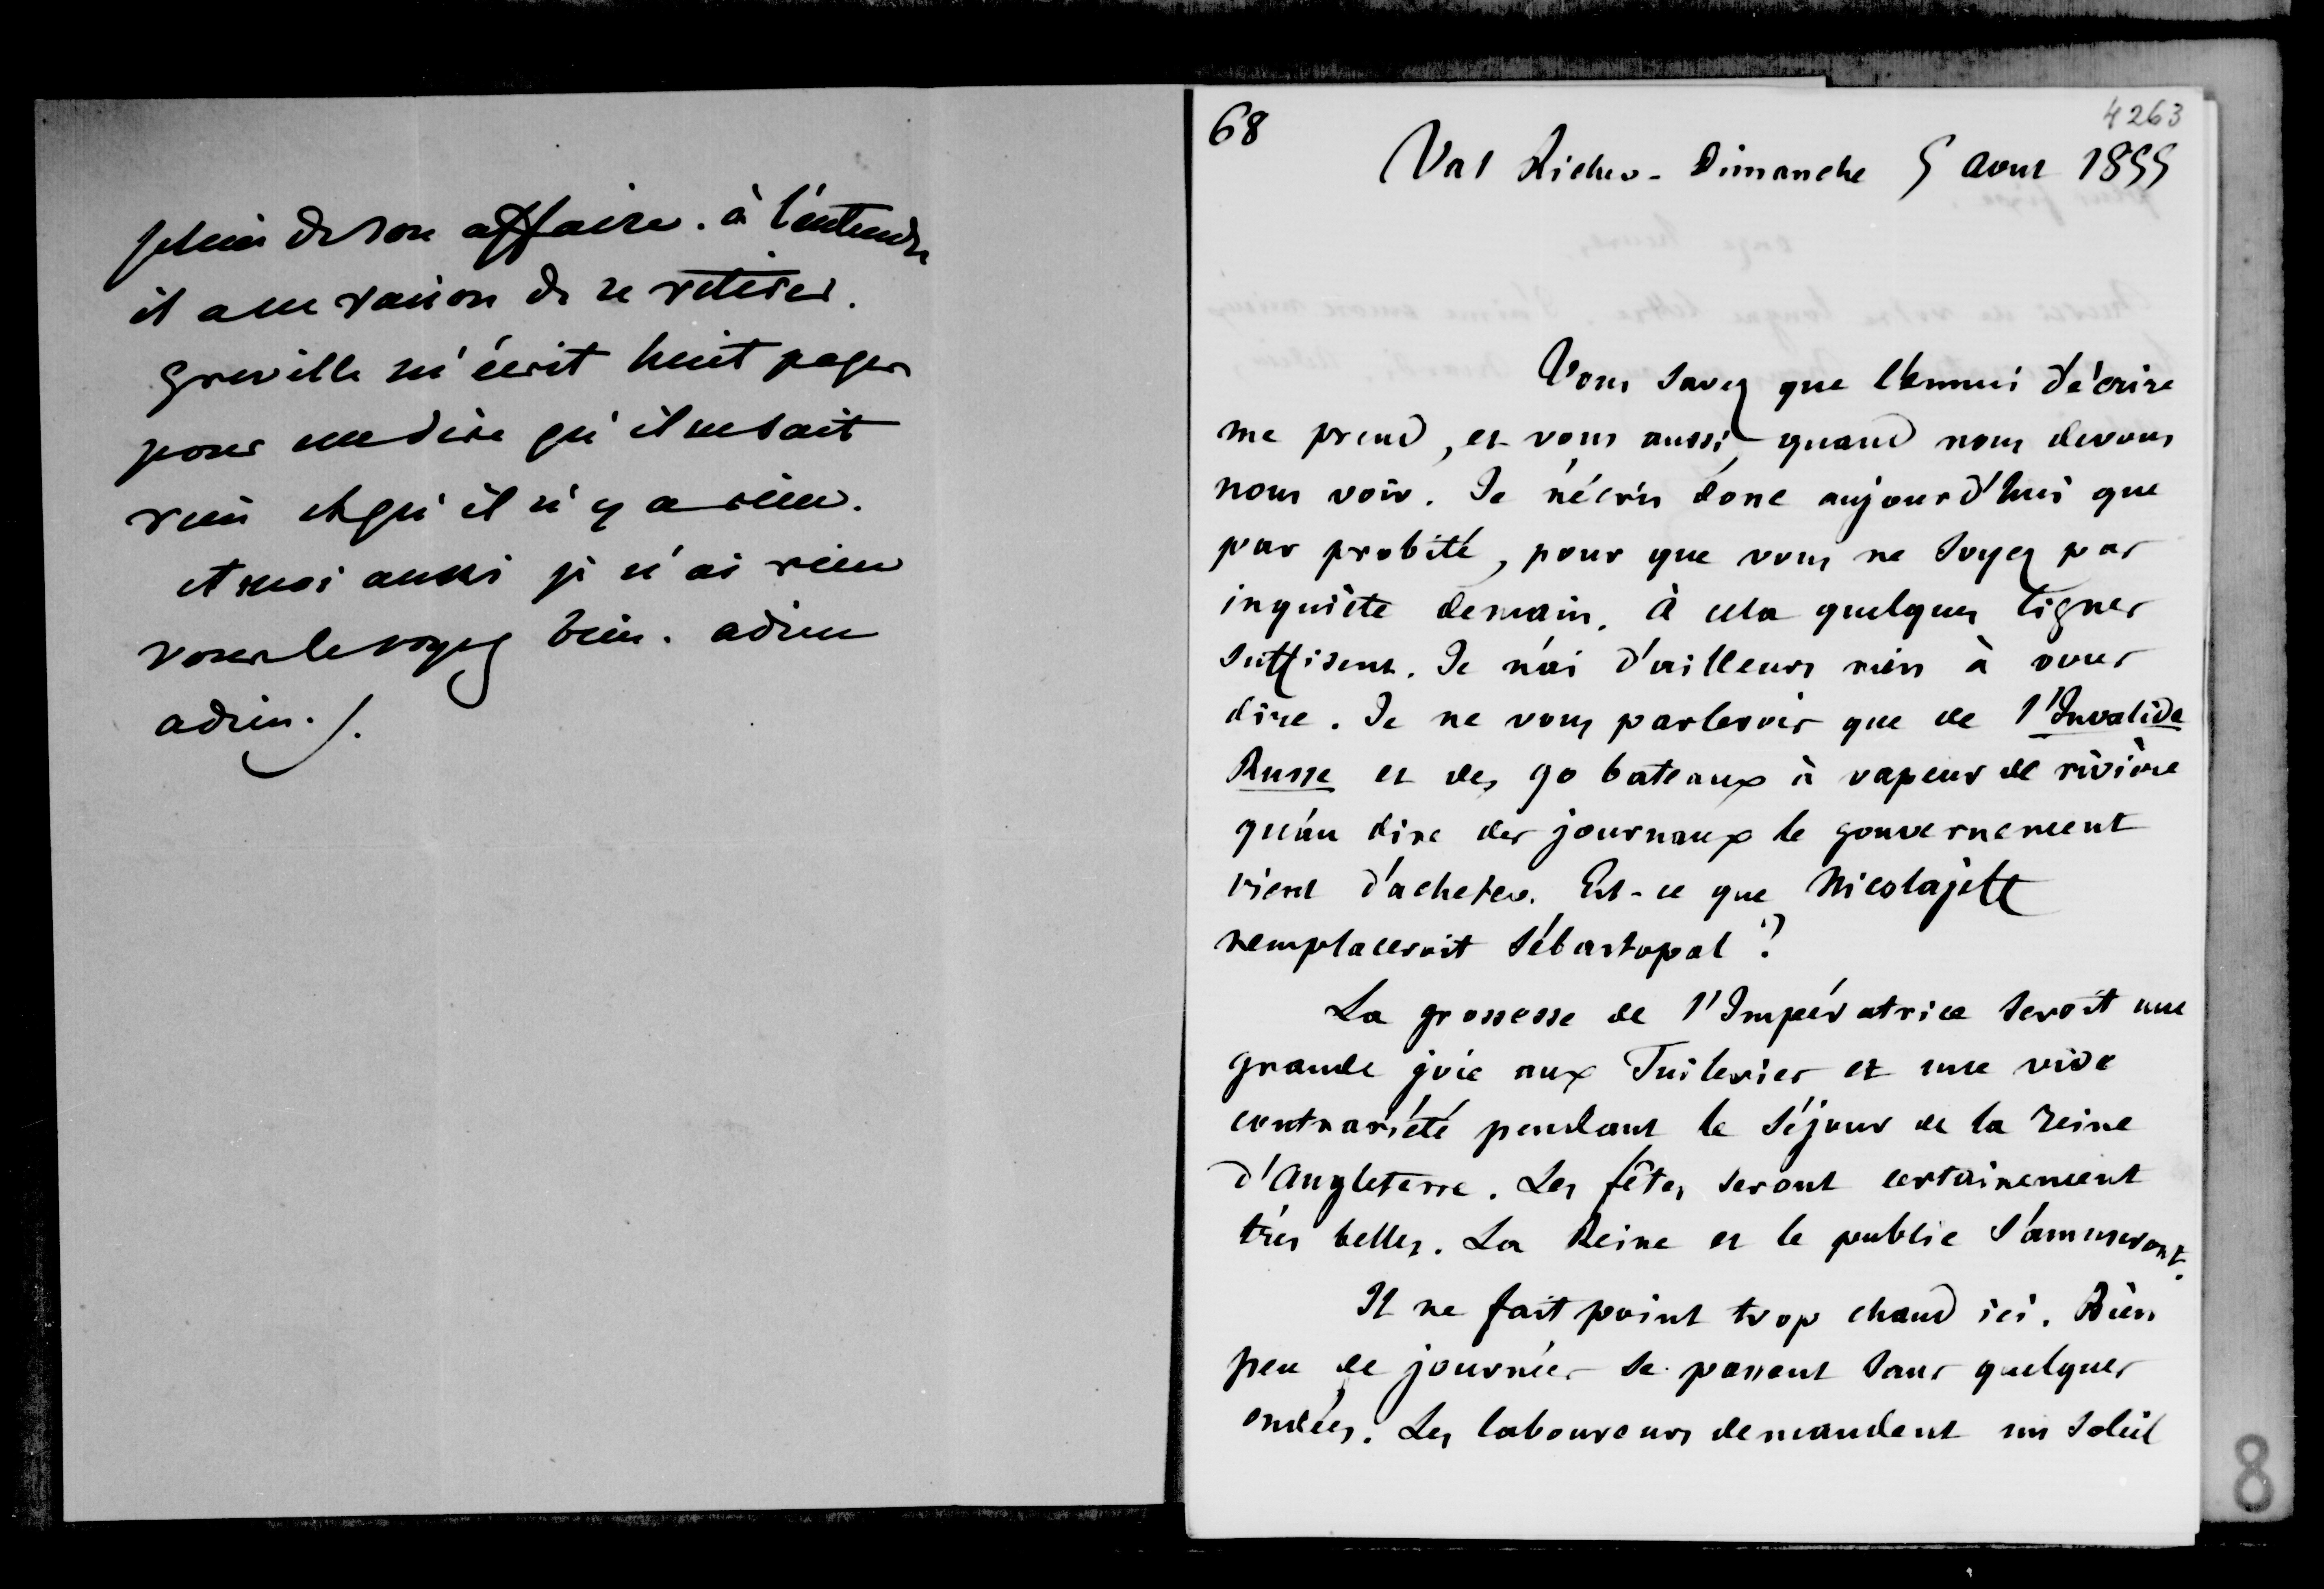 plein de son affaire. à l'entendre
il a eu raison de se retirer.
Greville m'écrit huit pages
pour me dire qu'il ne sait
rien et qu'il n'y a rien.
et moi aussi je n'ai rien
vous le voyez bien. adieu
adieu.
68
4263
Val Richer - Dimanche 5 Aout 1855
Vous savez que l'ennui d'écrire
me prend, et vous aussi, quand nous devons
nous voir. Je n'écris donc aujourd'hui que
par probité, pour que vous ne soyez pas
inquiète demain. à cela quelques lignes
suffisent. Je n'ai d'ailleurs rien à vous
dire. Je ne vous parlerois que de l'Invalide
Russe et des 90 bateaux à vapeur de rivière
qu'au dire des journaux le gouvernement
vient d'acheter. Est-ce que Nicolajeff
remplaceroit Sébastopol ?
La grossesse de l'Impératrice seroit une
grande joie aux Tuileries et une vive
contrariété pendant le séjour de la reine
d'Angleterre. Les fêtes seront certainement
très belles. La Reine et le public s'amuseront.
Il ne fait point trop chaud ici. Bien
peu de journées se passent sans quelques
ondées. Les laboureurs demandent un soleil
8